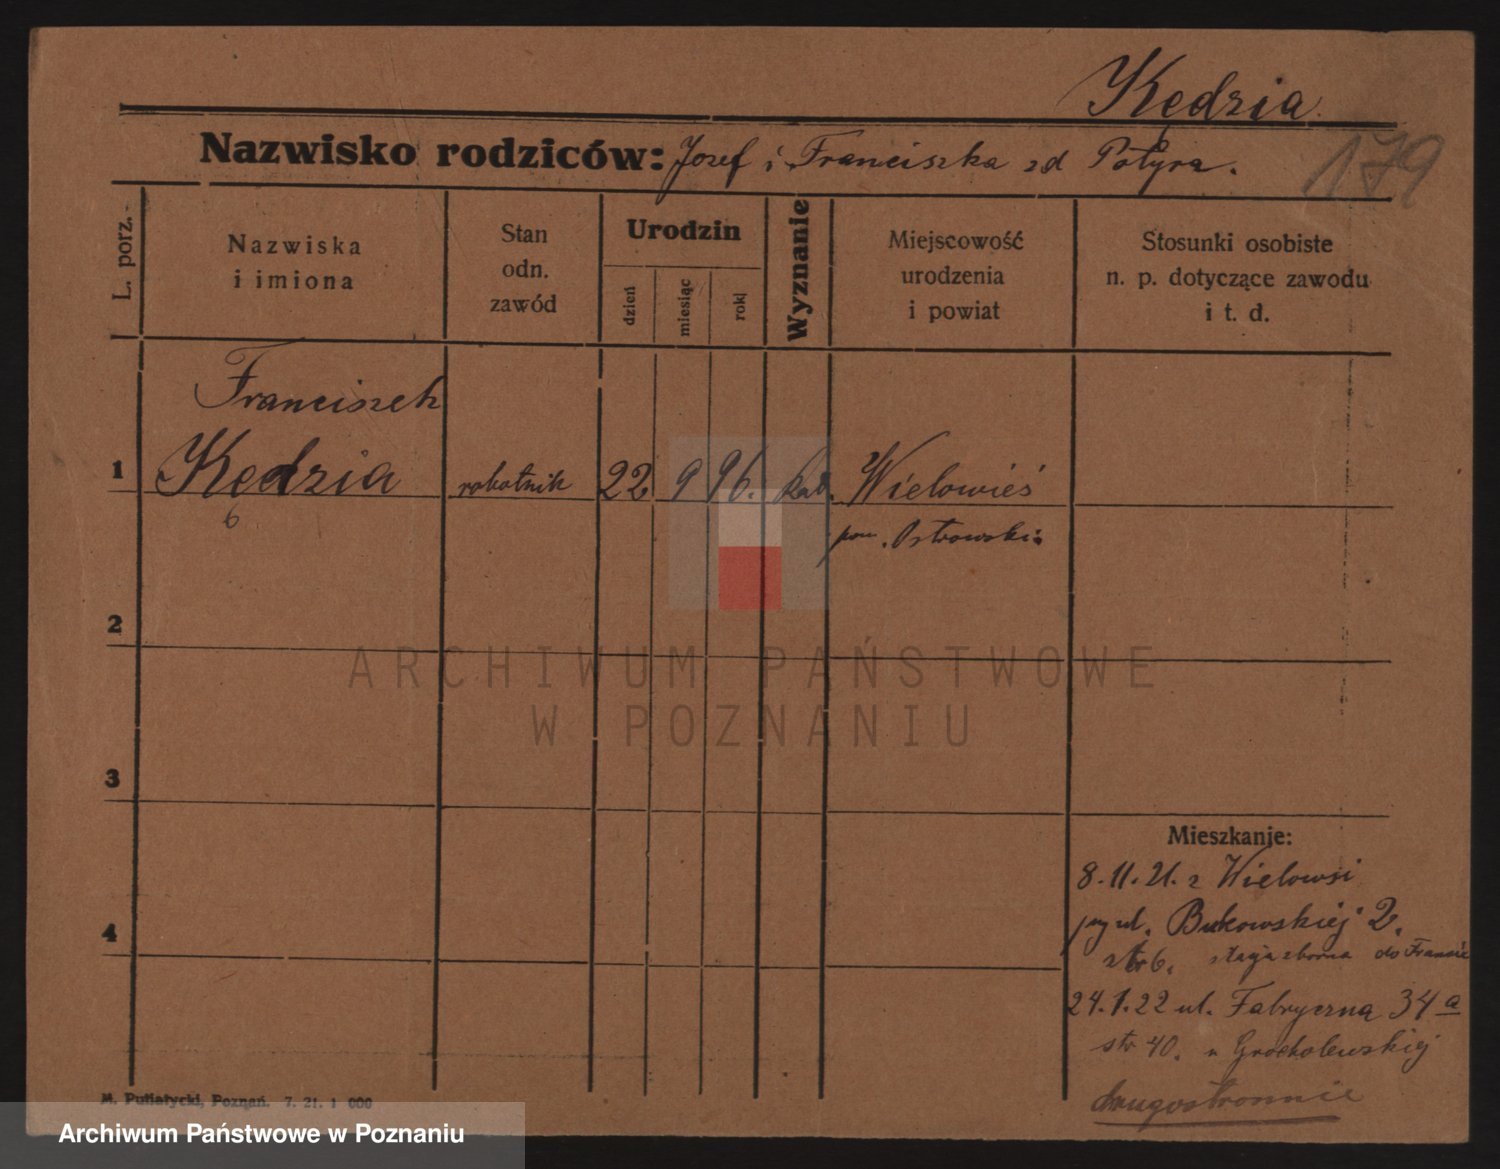 Kędzia
179
Nazwisko rodziców: Jozef i Franciszka zd Potyra.
L. porz.
Nazwiska
i imiona
Stan
odn.
zawód
Urodzin
dzień
miesiąc
rok
Wyznanie
Miejscowość
urodzenia
i powiat
Stosunki osobiste
n. p. dotyczące zawodu
i t. d.
Franciszek
1 Kędzia robotnik 22 9 96. kat. Wielowieś
6
pow. Ostrowski.
2
ARCHIWUM PAŃSTWOWE
W POZNANIU
3
Mieszkanje:
8.11.21. z Wielowsi
4
przy ul. Bukowskiej 2.
str 6. stacja zborna do Francie
24.1.22 ul. Fabryczna 34a
str 40. u Grocholewskiej
drugostronnie
M. Putiatycki, Poznań. 7. 21. 1 000
Archiwum Państwowe w Poznaniu